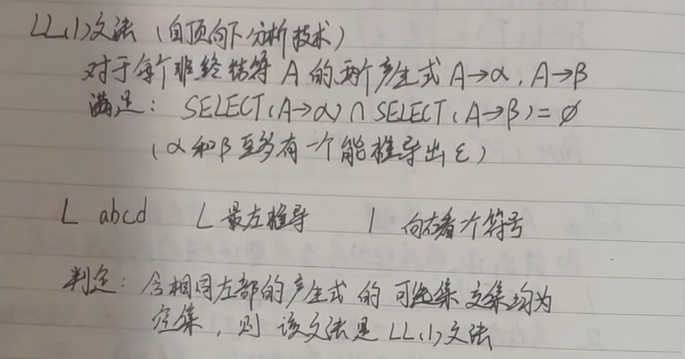 LL(1)文法（自顶向下分析技术）
对于每个非终结符 A 的两个产生式 A→α, A→β
满足： SELECT(A→α) ∩ SELECT(A→β) = ∅
（α和β至多有一个能推导出 ε）
L abcd L 最左推导 1 向右看个符号
判定：含相同左部的产生式的可选集交集均为
空集，则该文法是 LL(1)文法